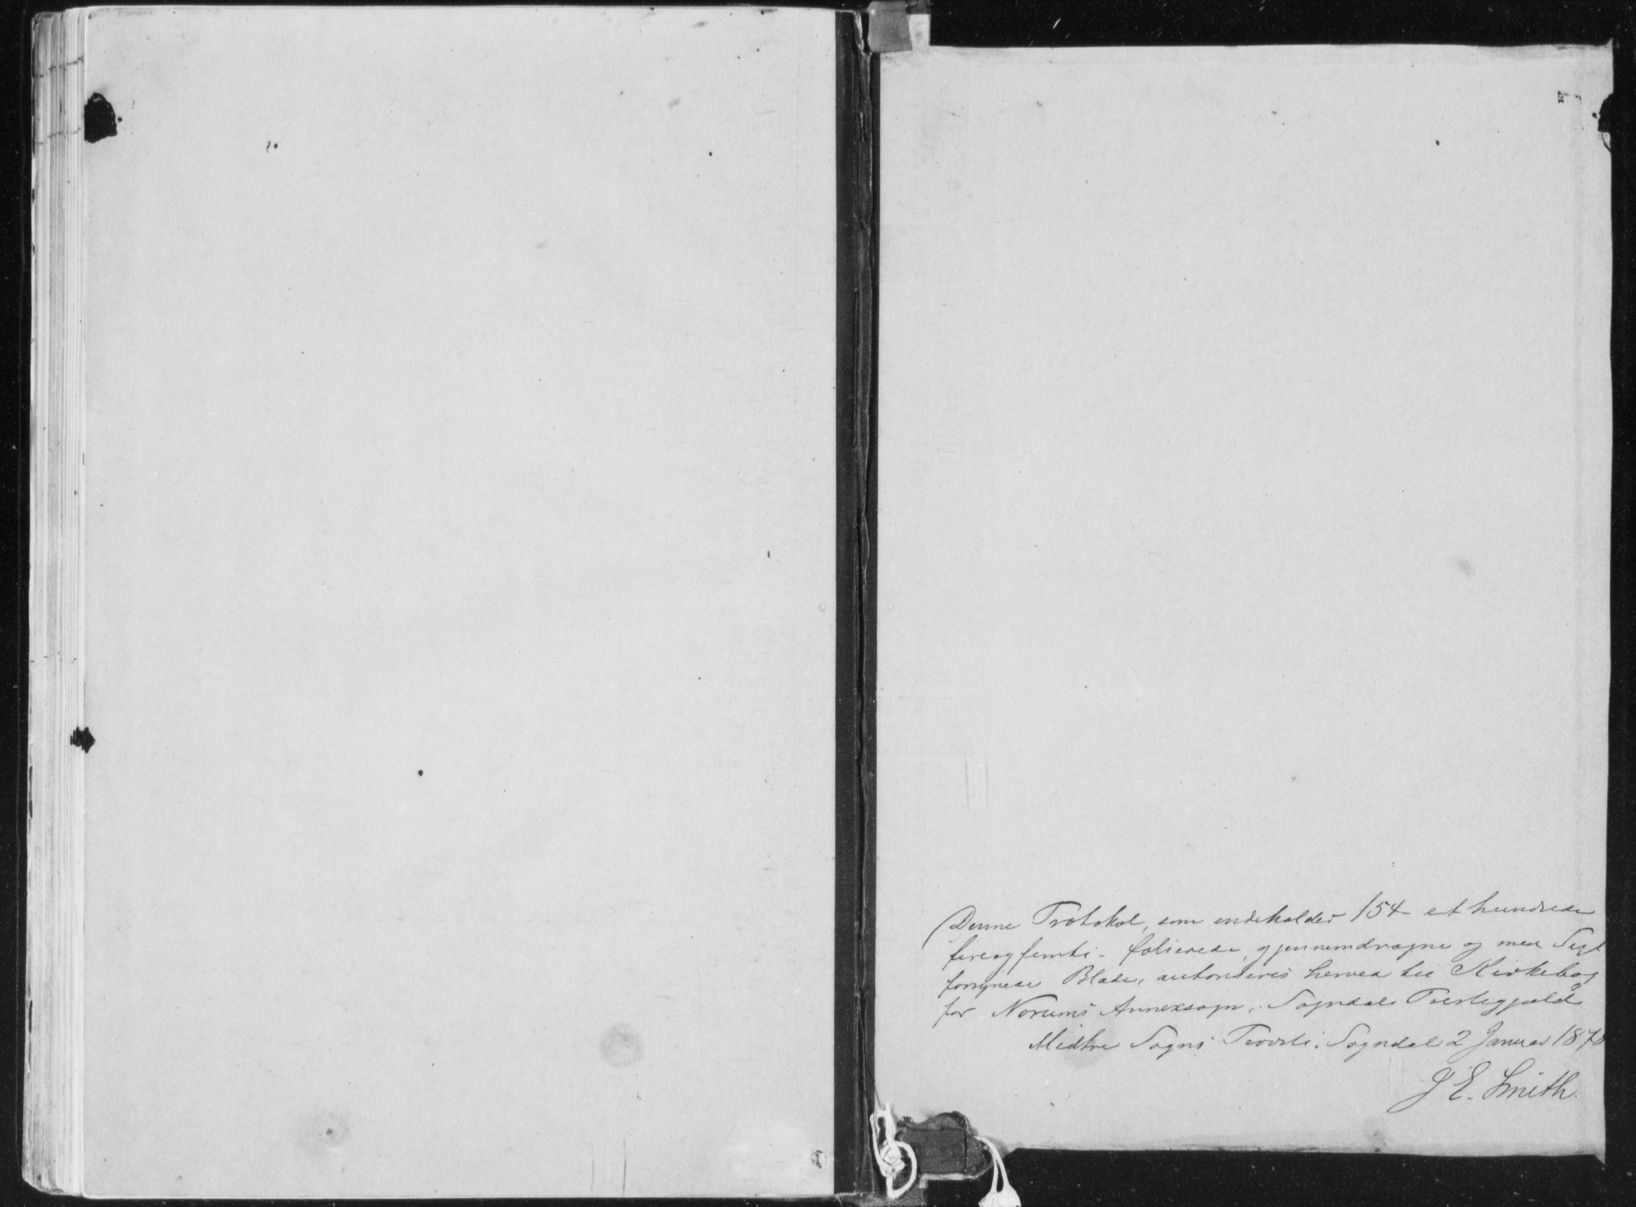 Denne Protokol, som indeholder 154 et hundrede
fireogfemti - folierede, gjennemdragne og med Segl
forsynede Blade, autoriseres herved til Kirkebog
for Norums Annexsogn, Sogndals Præstegjæld
Midtre Sogns Provsti. Sogndal 2 Januar 1870
J E. Smith.